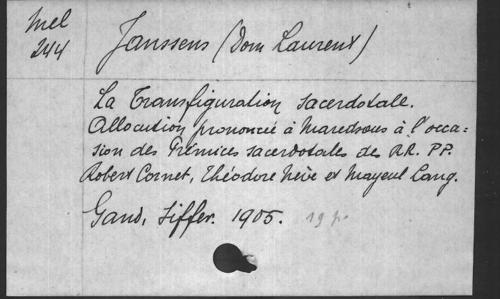 Mel
244
Janssens (Dom Laurent)
La Transfiguration sacerdotale.
Allocution prononcée à Maredsous à l'occa=
sion des Prémices sacerdotales des RR. PP.
Robert Cornet, Théodore Nève et Mayeul Lang.
Gand, Siffer. 1905. 19 p.